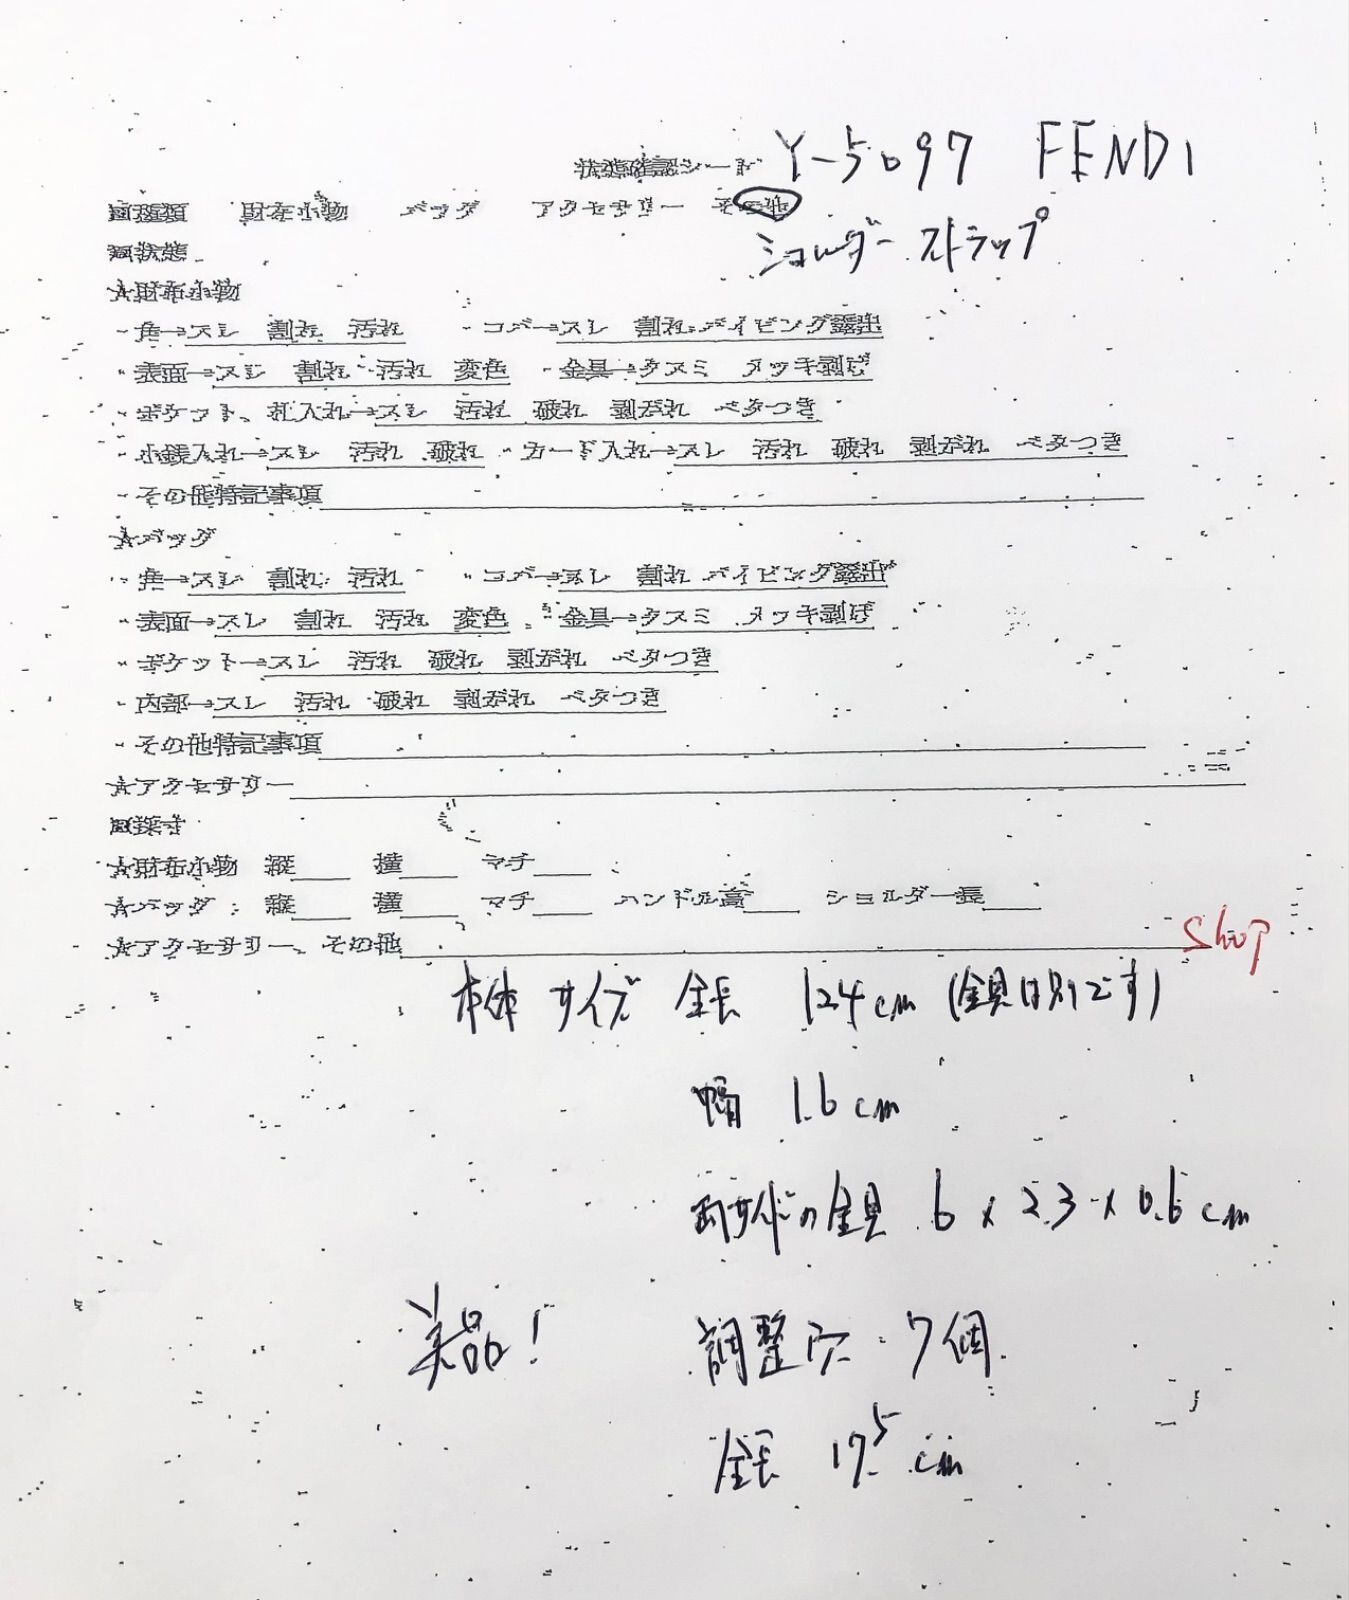 状態確認シート Y-5097 FENDI
□種類 財布小物 バッグ アクセサリー その他
ショルダーストラップ
□状態
★財布小物
・角→スレ 割れ 汚れ ・コバ→スレ 割れ パイピング露出
・表面→スレ 割れ 汚れ 変色 ・金具→クスミ メッキ剥げ
・ポケット、札入れ→スレ 汚れ 破れ 剥がれ ベタつき
・小銭入れ→スレ 汚れ 破れ ・カード入れ→スレ 汚れ 破れ 剥がれ ベタつき
・その他特記事項
★バッグ
・角→スレ 割れ 汚れ ・コバ→スレ 割れ パイピング露出
・表面→スレ 割れ 汚れ 変色 ・金具→クスミ メッキ剥げ
・ポケット→スレ 汚れ 破れ 剥がれ ベタつき
・内部→スレ 汚れ 破れ 剥がれ ベタつき
・その他特記事項
★アクセサリー
□採寸
★財布小物 縦 横 マチ
★バッグ: 縦 横 マチ ハンドル高 ショルダー長
★アクセサリー、その他 Shop
本体サイズ 全長 124cm (金具は別です)
幅 1.6cm
両サイドの金具 6×2.3×0.6cm
美品! 調整穴 7個
全長 17.5cm